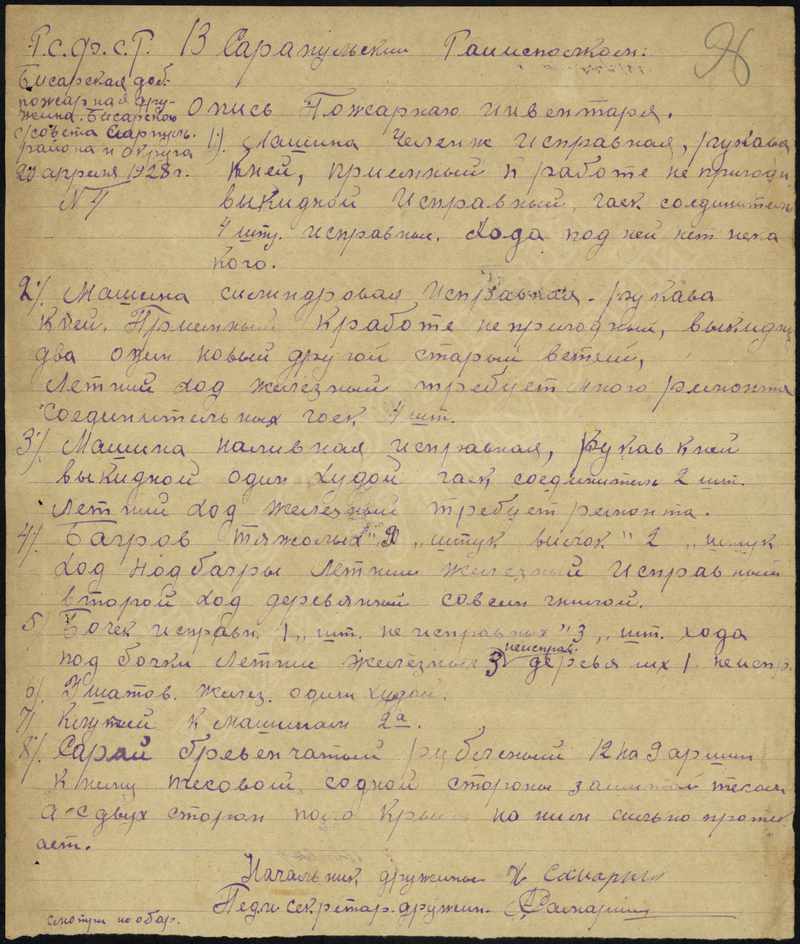 Р.С.Ф.С.Р. В Сарапульский Раиисполком.
Бисарская доб.
пожарная дру-
жина. Бисарского
с/совета Сарапул.
района и округа
апреля 1928 г.
Опись Пожарнаго инвентаря.
1). Машина Челенж исправная, рукава
кней, приемный к работе не пригодн
выкидной исправный, гаек соединител
4 шт. исправные. Хода под ней нет ника
кого.
2). Машина цилиндровая исправная. рукава
кней. Приемный кработе непригодный, выкидных
два один новый другой старый ветхий,
Летний ход железный требует много ремонта
соединительных гаек 4 шт.
3). Машина наливная исправная, рукав кней
выкидной один худой гаек соединитель 2 шт.
Летний ход железный требует ремонта.
4). Багров тяжолых " 2 " штук вилок " 2 " штук
ход под багры Летний железный исправный
второй ход деревянный совсем гнилой.
5) Бочек исправн. 1 " шт. не исправных " 3 " шт. хода
под бочки летние железных 3 неисправ. деревянных 1 неиспр.
6) Ушатов. желез. один худой.
7) Ключей к машинам 2а.
8). Сарай бревенчатый рубленый 12 на 9 аршин
к нему тесовой содной стороны зашитой тесом
а сдвух сторон на нем сильно протек
ает.
Начальник дружины
секретар. дружин.
смотри на обор.